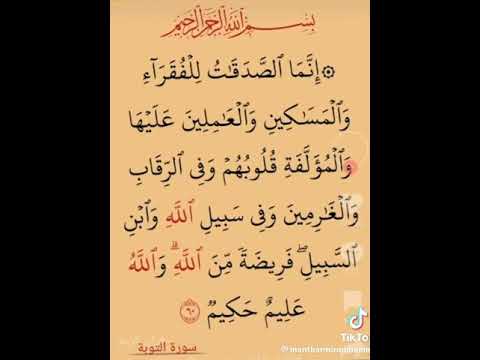 بِسْمِ اللَّهِ الرَّحْمَٰنِ الرَّحِيمِ
۞ إِنَّمَا ٱلصَّدَقَٰتُ لِلْفُقَرَآءِ
وَٱلْمَسَٰكِينِ وَٱلْعَٰمِلِينَ عَلَيْهَا
وَٱلْمُؤَلَّفَةِ قُلُوبُهُمْ وَفِى ٱلرِّقَابِ
وَٱلْغَٰرِمِينَ وَفِى سَبِيلِ ٱللَّهِ وَٱبْنِ
ٱلسَّبِيلِۖ فَرِيضَةً مِّنَ ٱللَّهِۗ وَٱللَّهُ
عَلِيمٌ حَكِيمٌ ٦٠
سورة التوبة
TikTo